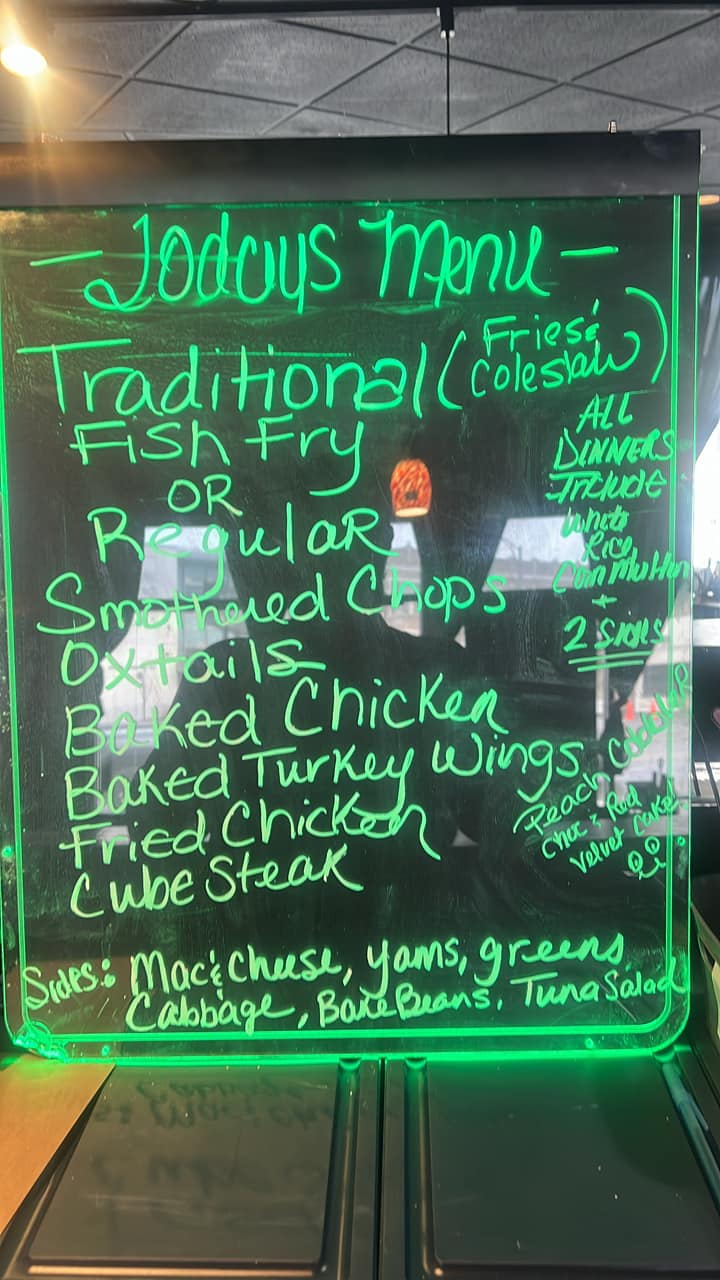 - Todays Menu -
Traditional (Fries &
Coleslaw)
Fish Fry
OR
Regular
Smothered Chops
Oxtails
Baked Chicken
Baked Turkey Wings
Fried Chicken
Cube Steak
ALL
DINNERS
Include
White
Rice
Corn Muffen
+
2 Sides
Peach Cobbler
Choc & Red
Velvet Cake
Sides: Mac & Cheese, yams, greens
Cabbage, Bake Beans, Tuna Salad